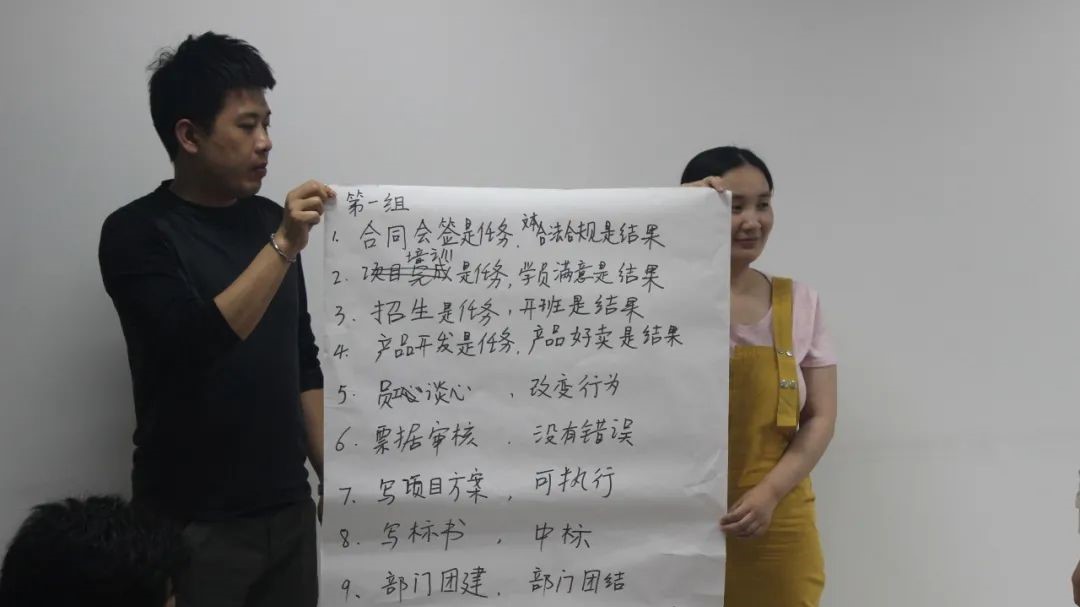 第一组
1. 合同会签是任务,文本合法合规是结果
2. 项目培训是任务,学员满意是结果
3. 招生是任务,开班是结果
4. 产品开发是任务,产品好卖是结果
5. 员工谈心,改变行为
6. 票据审核,没有错误
7. 写项目方案,可执行
8. 写标书,中标
9、部门团建,部门团结